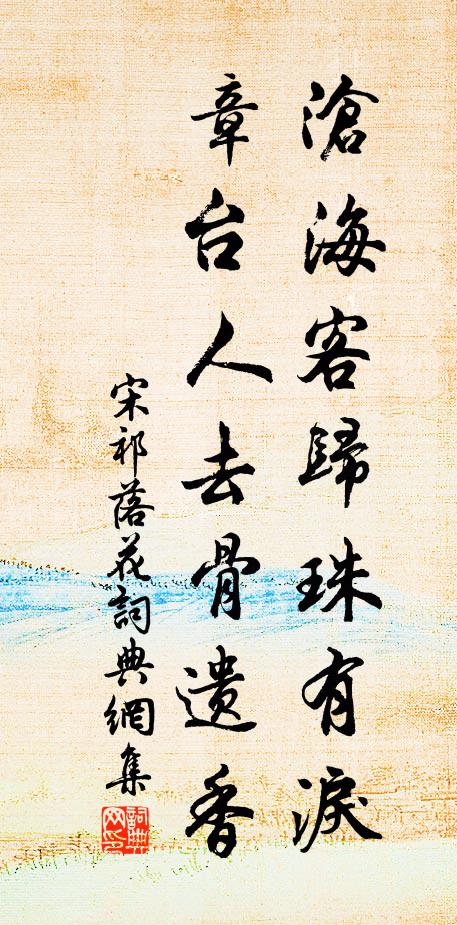 滄海客歸珠有淚
章台人去骨遺香
宋祁落花詞典網集
詞典网印